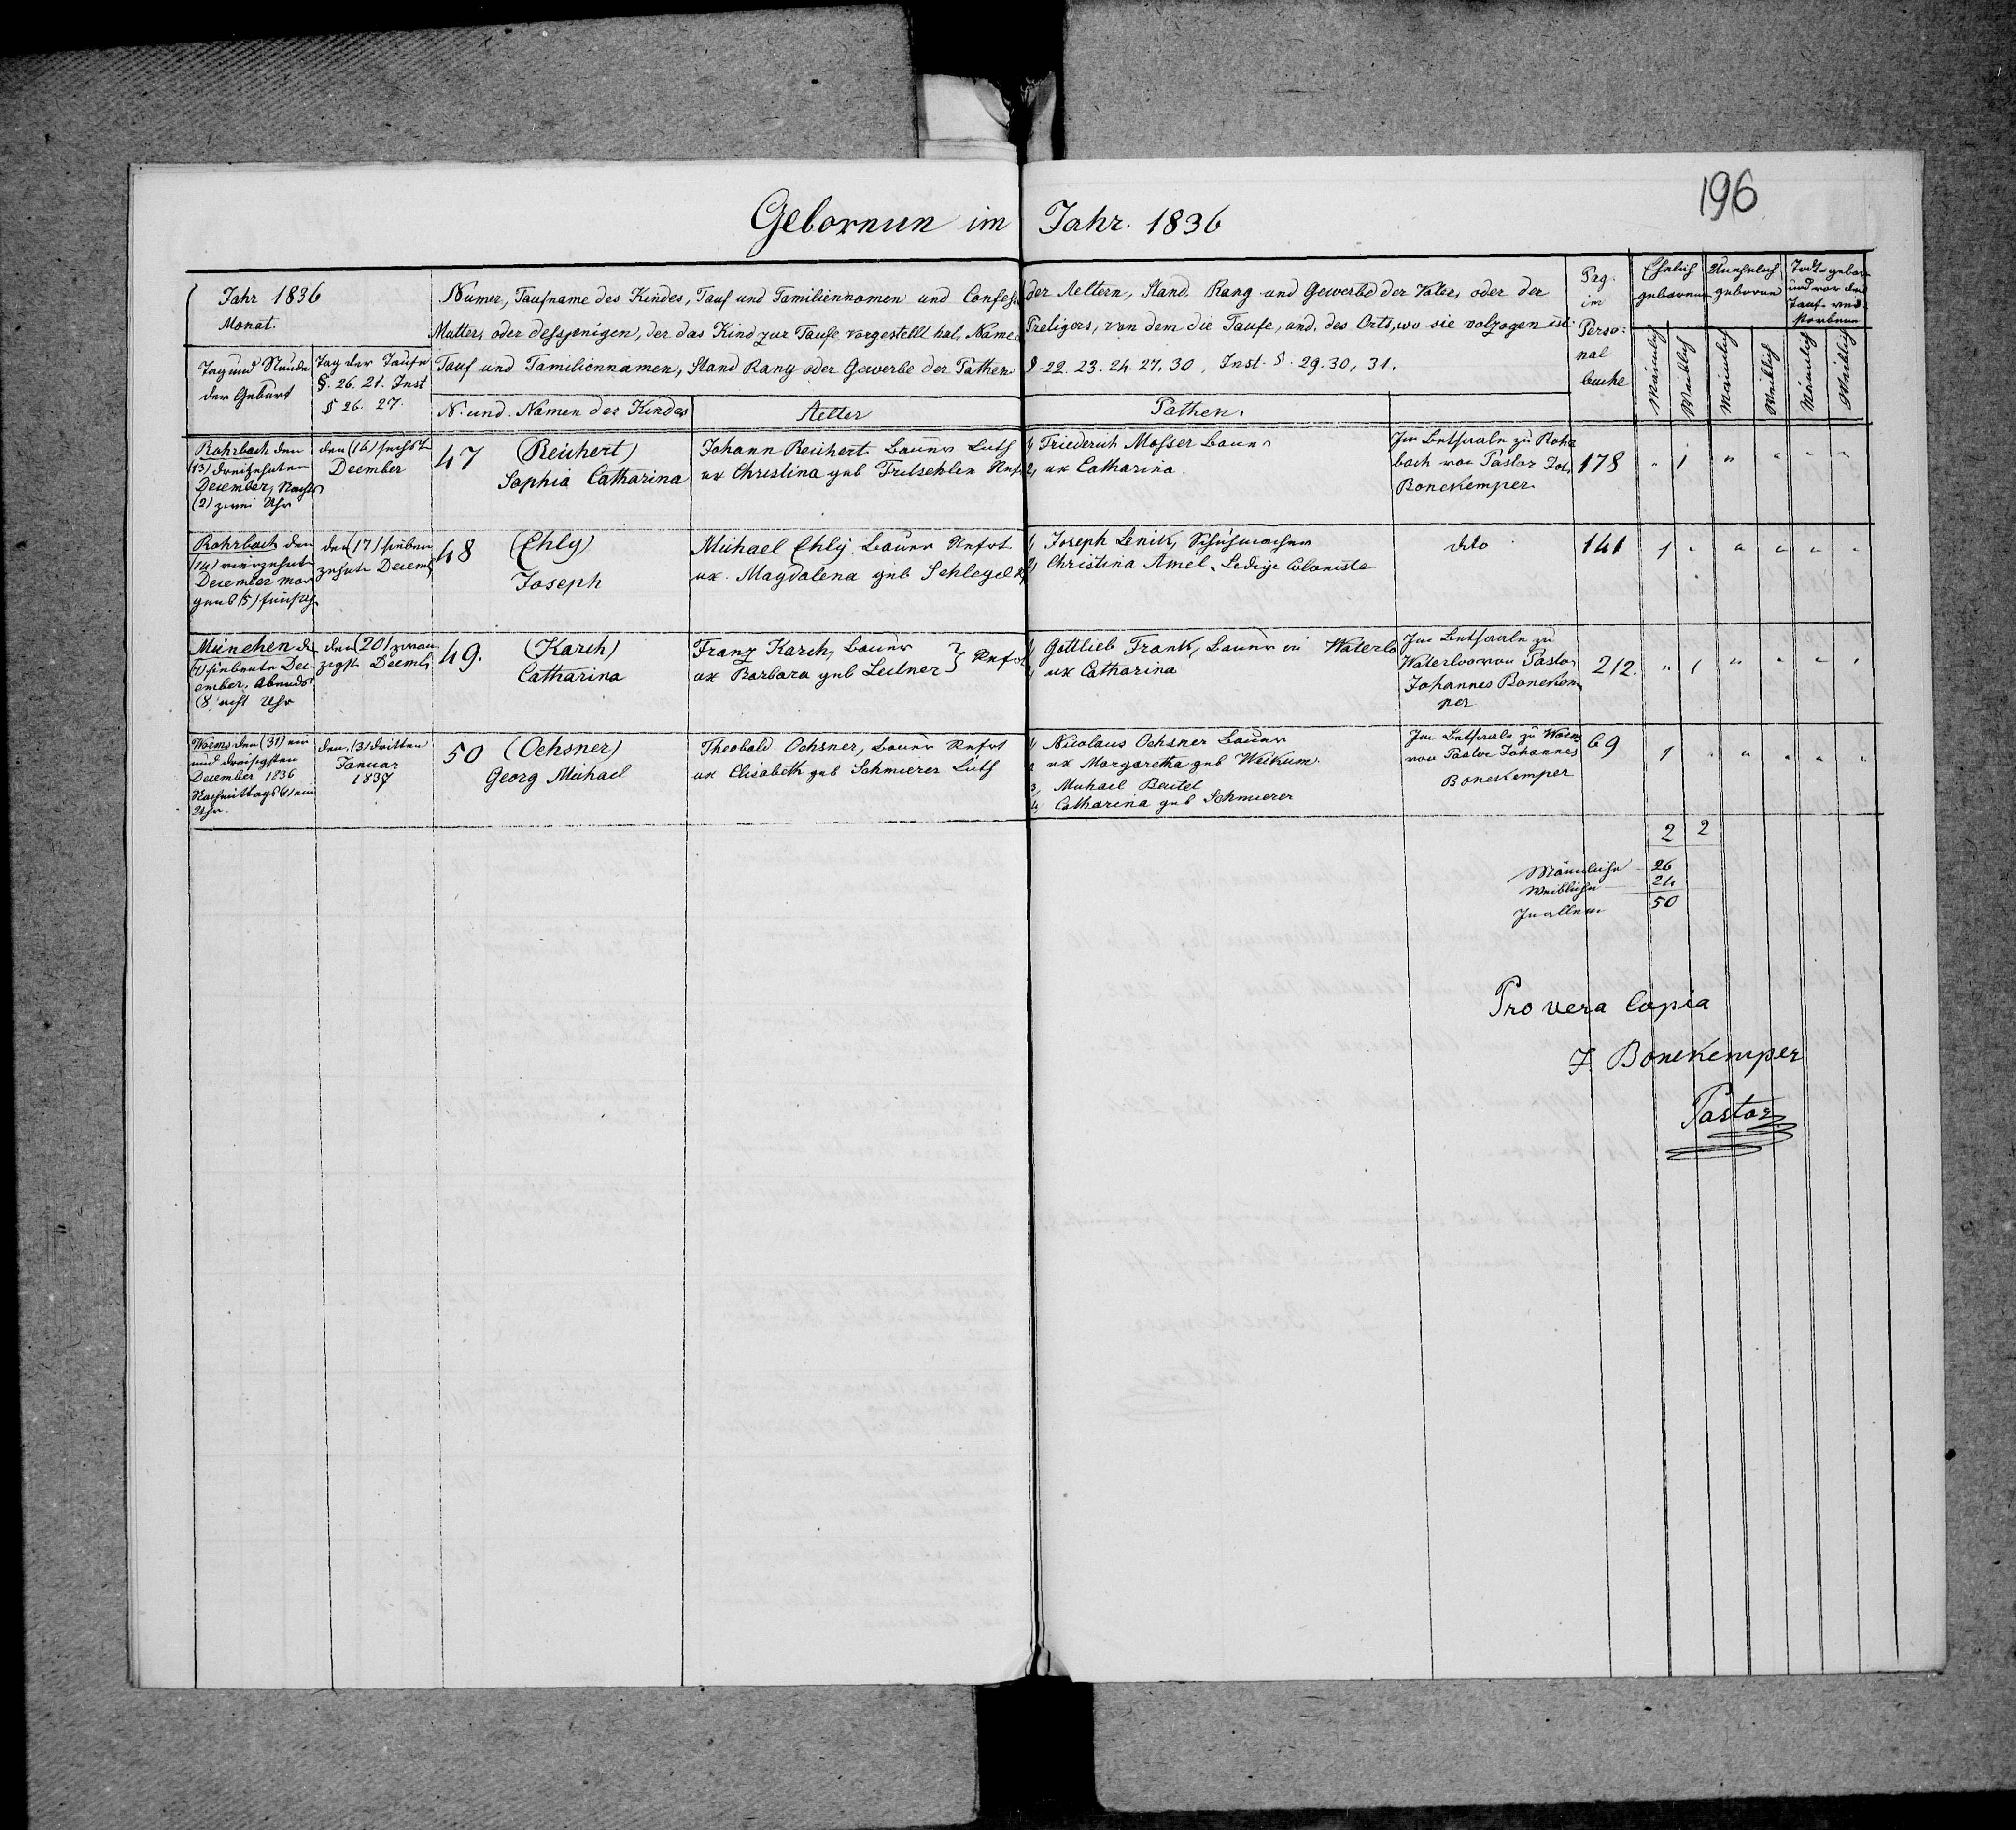 196
Gebornun im Jahr. 1836
Jahr 1836
Monat.
Tag und Stunde
der Geburt
Tag der Taufe
§. 26. 21. Inst
§ 26. 27.
Numer, Taufname des Kindes, Tauf und Familiennamen und Confess. der Aeltern, Stand Rang und Gewerbe der Vater, oder der
Mutter, oder desjenigen, der das Kind zur Taufe vorgestellt hat, Name Predigers, von dem die Taufe, und des Orts, wo sie volzogen ist
Tauf und Familiennamen, Stand Rang oder Gewerbe der Pathen § 22. 23. 24. 27. 30, Inst. §. 29. 30, 31.
N. und Namen des Kindes
Aelter
Pathen.
Pag.
im
Perso-
nal
buche
Ehelich
gebornen
Unehelich
geboren
Todt-gebor
und vor der
Tauf verstorbene
Mänlich
Weiblich
Mänlich
Weiblich
Mänlich
Weiblich
Rohrbach den
(13) dreizehnten
December, Nachts
(2) zwei Uhr
den (16) sechst
Deember
47
(Reichert)
Sophia Catharina
Johann Reichert Bauer Luth
ux Christina geb Fritschlen Refr
1, Friederich Mosser Bauer
2, ux Catharina.
Im Bethsaale zu Rohr
bach von Pastor Joh.
Bonekemper
178
" 1 " " " "
Rohrbach den
(14) vierzehnt
December mor
gens (5) fünf Uhr
den (17) sieben
zehnte Decemb
48
(Ehly)
Joseph
Michael Ehly Bauer Refrt
ux. Magdalena geb Schlegel
1, Joseph Lenik, Schuhmacher
2, Christina Amel. Ledige Coloniste
dito
141
1 " " " " "
München d
(7) siebente Dec
ember, Abends
(8, acht Uhr
den (20) zwan
zigste Deemb,
49.
(Karch)
Catharina
Franz Karch, Bauer
ux Barbara geb Leitner } Refrt
1, Gottlieb Frank, Bauer in Waterlo
2, ux Catharina
Im Bethsaale zu
Waterloo von Pastor
Johannes Bonekem
per
212.
" 1 " " " "
Worms den (31) ein
und dreisigsten
December 1836
Nachmittags (1) ein
Uhr.
den, (3) dritten
Januar
1837
50
(Ochsner)
Georg Michael
Theobald Ochsner, Bauer Refrt
ux Elisabeth geb Schmierer Luth
1, Nicolaus Ochsner Bauer
2 ux Margaretha geb Weikum.
3, Michael Beutel
4, Catharina geb Schmierer
Im Bethsaale zu Worm
von Pastor Johannes
Bonekemper
69
1 " " " " "
2 2
Männliche 26
Weibliche 24
In allem 50
Pro vera Copia
J. Bonekemper
Pastor